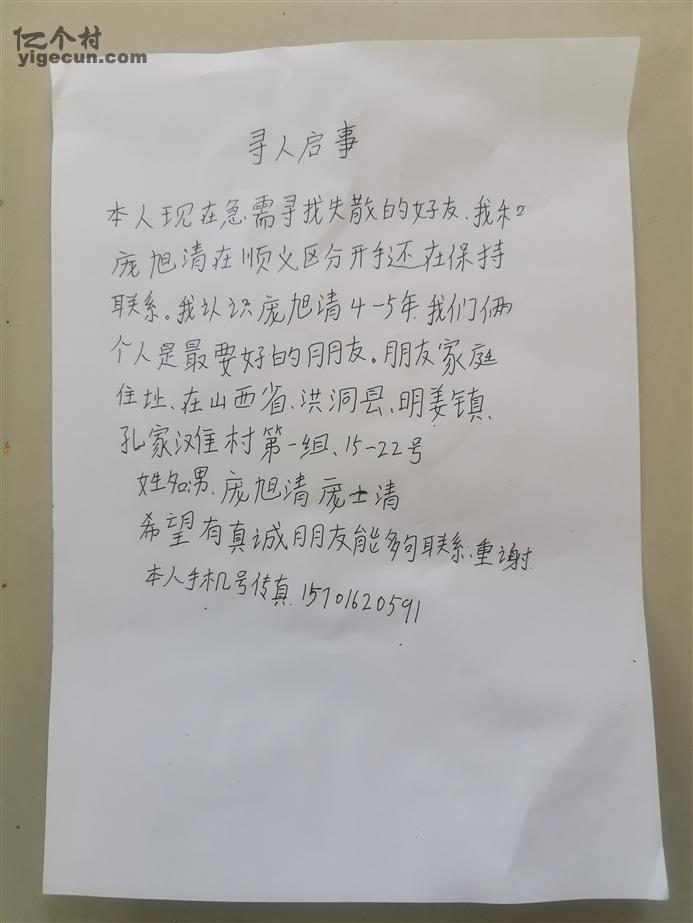 亿个村
yigecun.com
寻人启事
本人现在急需寻找失散的好友、我和
庞旭清在顺义区分开手还在保持
联系。我认识庞旭清4-5年我们俩
个人是最要好的朋友。朋友家庭
住址、在山西省、洪洞县、明姜镇、
孔家滩村第一组、15-22号
姓名男、庞旭清庞士清
希望有真诚朋友能够联系、重谢
本人手机号传真、15701620591